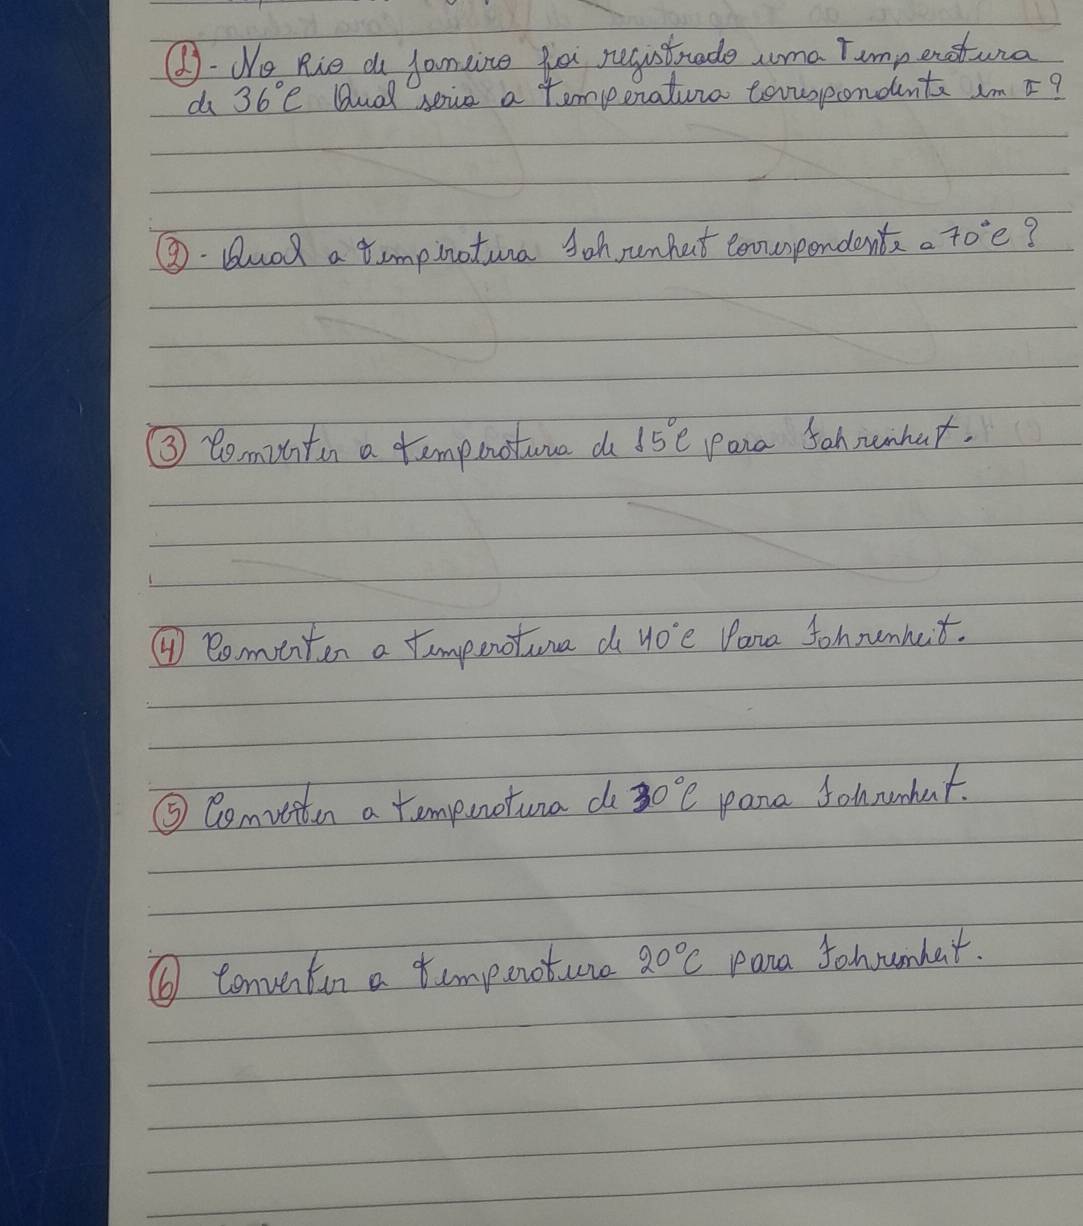 ①- No Rio de Janeiro foi registrado uma Temperatura
de 36°C Qual seria a temperatura correspondente em F?
②- Qual a temperatura Fahrenheit correspondente a 70°C?
③ Converter a temperatura de 15°C para Fahrenheit.
④ Converter a temperatura de 40°C Para Fahrenheit.
⑤ Converter a temperatura de 30°C para Fahrenheit.
⑥ Converter a temperatura 20°C para Fahrenheit.